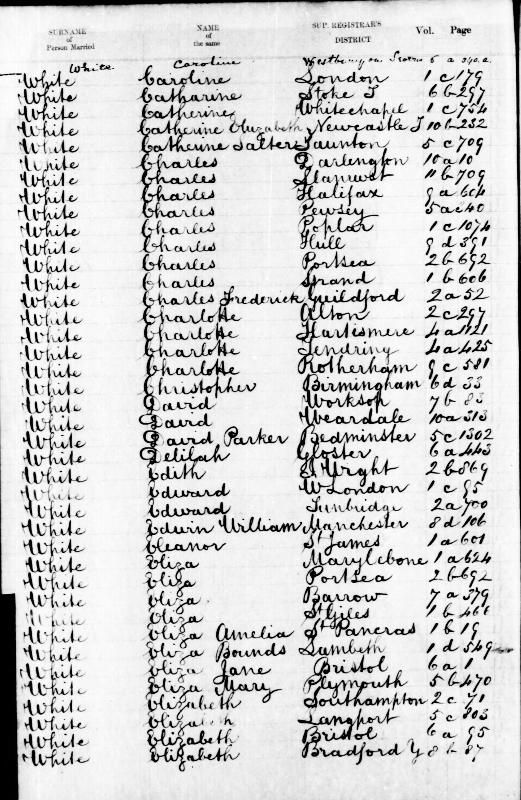 SURNAME of Person Married NAME of the same SUP. REGISTRAR'S DISTRICT Vol. Page
White Caroline Westbury on Severn 6 a 340.a.
White Caroline London 1 c 179
White Catharine Stoke T 6 b 297
White Catherine Whitechapel 1 c 754
White Catherine Elizabeth Newcastle T 10 b 232
White Catherine Salter Taunton 5 c 709
White Charles Darlington 10 a 10
White Charles Llanrwst 11 b 709
White Charles Halifax 9 a 604
White Charles Pewsey 5 a 40
White Charles Poplar 1 c 1074
White Charles Hull 9 d 391
White Charles Portsea 2 b 692
White Charles Strand 1 b 606
White Charles Frederick Guildford 2 a 52
White Charlotte Alton 2 c 297
White Charlotte Hartismere 4 a 1121
White Charlotte Tendring 4 a 425
White Charlotte Rotherham 9 c 581
White Christopher Birmingham 6 d 33
White David Worksop 7 b 83
White David Weardale 10 a 313
White David Parker Bedminster 5 c 1302
White Delilah Gloster 6 a 443
White Edith I Wight 2 b 869
White Edward W London 1 c 95
White Edward Tunbridge 2 a 700
White Edwin William Manchester 8 d 106
White Eleanor St James 1 a 601
White Eliza Marylebone 1 a 624
White Eliza Portsea 2 b 692
White Eliza Barrow 7 a 379
White Eliza St Giles 1 b 466
White Eliza Amelia St Pancras 1 b 19
White Eliza Bounds Lambeth 1 d 549
White Eliza Jane Bristol 6 a 1
White Eliza Mary Plymouth 5 b 470
White Elizabeth Southampton 2 c 71
White Elizabeth Langport 5 c 803
White Elizabeth Bristol 6 a 95
White Elizabeth Bradford Y 8 b 87